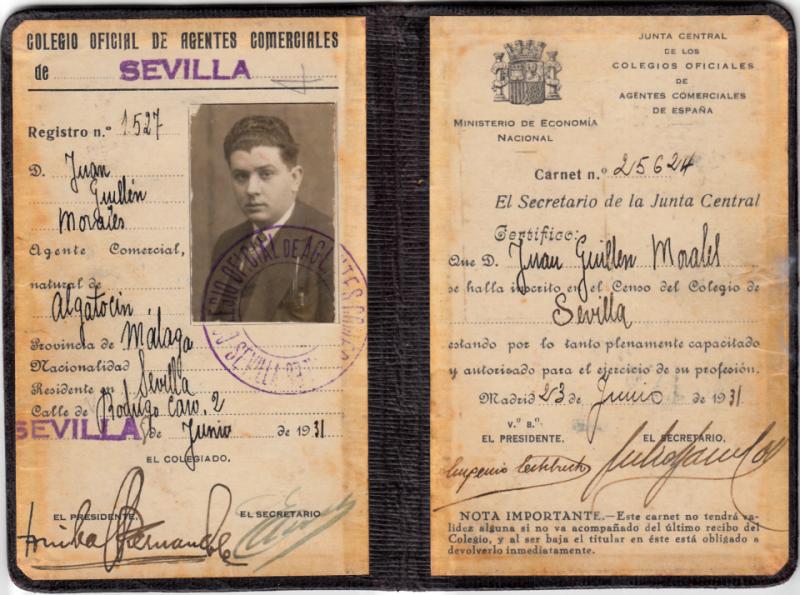 COLEGIO OFICIAL DE AGENTES COMERCIALES
de SEVILLA
Registro n.º 1527
D. Juan
Guillén
Morales
Agente Comercial,
natural de
Algatocín
Provincia de Málaga
Nacionalidad
Residente en Sevilla
Calle de Rodrigo Caro, 2
SEVILLA de Junio de 1931
EL COLEGIADO,
EL PRESIDENTE,
EL SECRETARIO
COLEGIO OFICIAL DE AGENTES COMERCIALES
SEVILLA
MINISTERIO DE ECONOMÍA
NACIONAL
JUNTA CENTRAL
DE LOS
COLEGIOS OFICIALES
DE
AGENTES COMERCIALES
DE ESPAÑA
Carnet n.º 25624
El Secretario de la Junta Central
Certifico:
Que D. Juan Guillen Morales
se halla inscrito en el Censo del Colegio de
Sevilla
estando por lo tanto plenamente capacitado
y autorizado para el ejercicio de su profesión.
Madrid 23 de Junio de 1931
V.º B.º
EL PRESIDENTE.
EL SECRETARIO,
NOTA IMPORTANTE.—Este carnet no tendrá va-
lidez alguna si no va acompañado del último recibo del
Colegio, y al ser baja el titular en éste está obligado a
devolverlo inmediatamente.